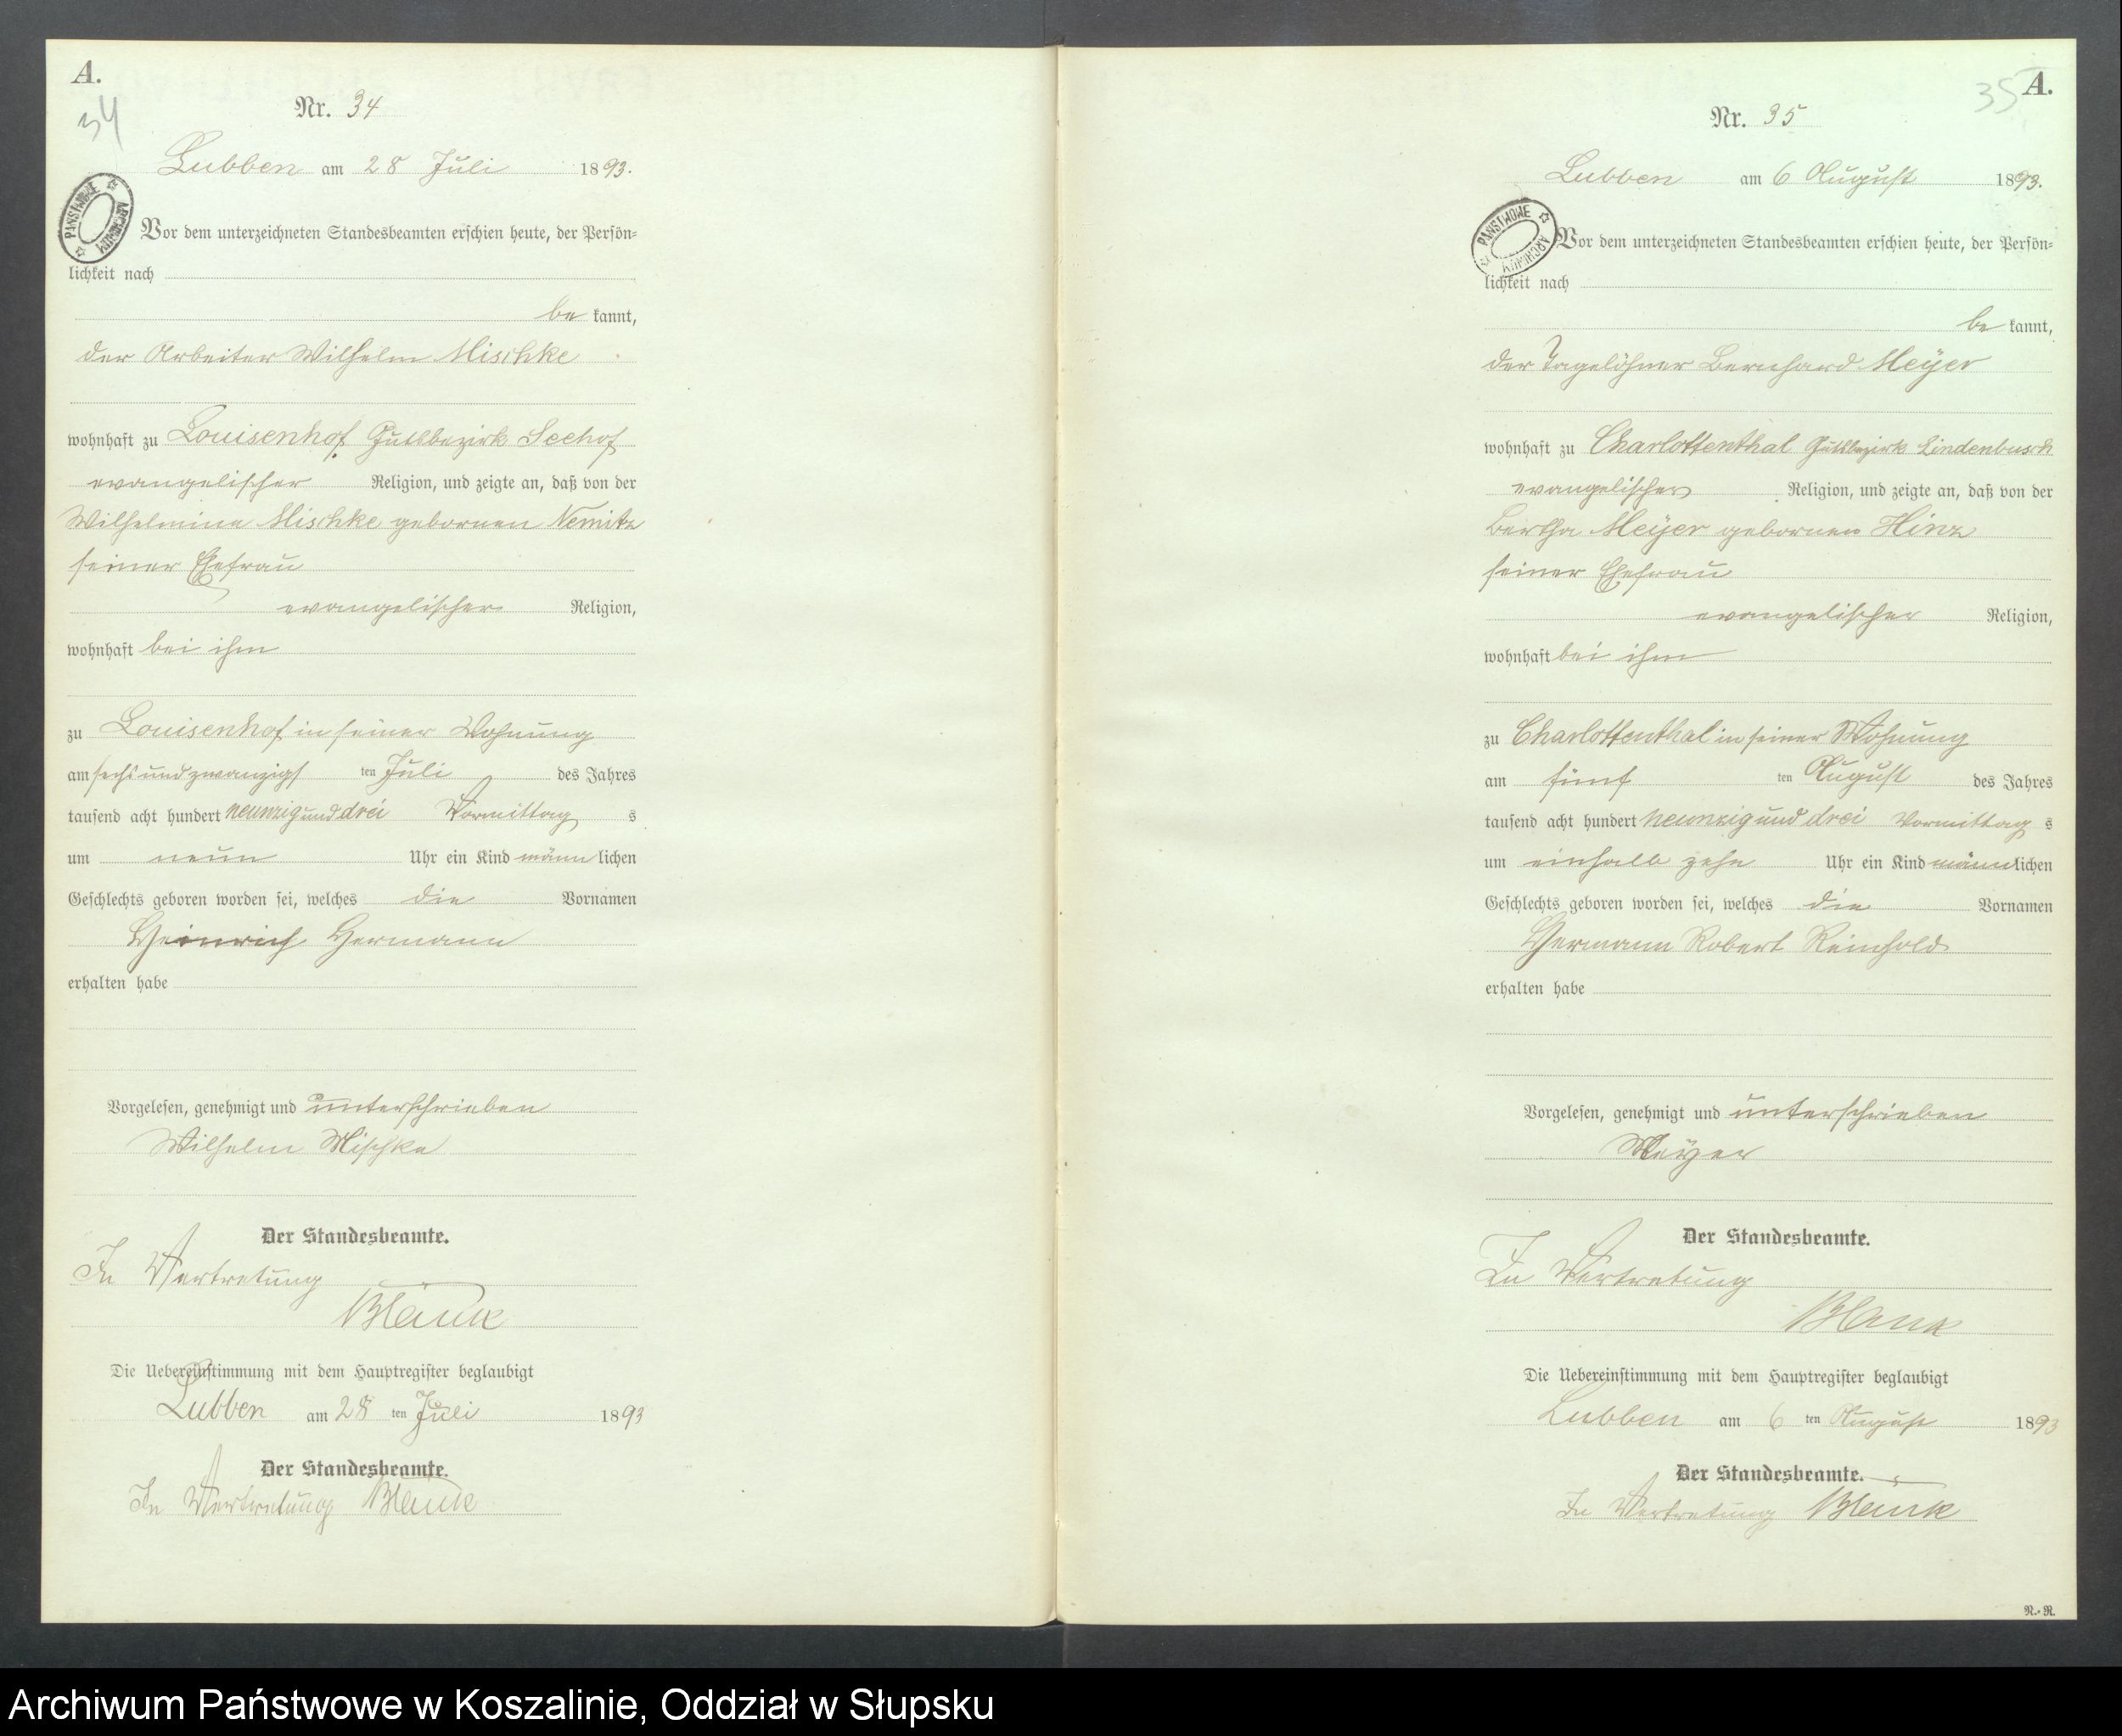 A.
34
Nr. 34
Lubben am 28 Juli 1893.
PAŃSTWOWE ARCHIWUM
Vor dem unterzeichneten Standesbeamten erschien heute, der Persön=
lichkeit nach
be kannt,
der Arbeiter Wilhelm Mischke
wohnhaft zu Louisenhof, Gutsbezirk Seehof
evangelischer Religion, und zeigte an, daß von der
Wilhelmine Mischke gebornen Nemitz
seiner Ehefrau
evangelischer Religion,
wohnhaft bei ihm
zu Louisenhof in seiner Wohnung
am sechs und zwanzigs ten Juli des Jahres
tausend acht hundert neunzig und drei Vormittag s
um neun Uhr ein Kind männ lichen
Geschlechts geboren worden sei, welches die Vornamen
Heinrich Hermann
erhalten habe
Vorgelesen, genehmigt und unterschrieben
Wilhelm Mischke
Der Standesbeamte.
In Vertretung
Blank
Die Uebereinstimmung mit dem Hauptregister beglaubigt
Lubben am 28 ten Juli 1893
Der Standesbeamte.
In Vertretung Blank
35 A.
Nr. 35
Lubben am 6 August 1893.
PAŃSTWOWE ARCHIWUM
Vor dem unterzeichneten Standesbeamten erschien heute, der Persön=
lichkeit nach
be kannt,
der Tagelöhner Bernhard Meyer
wohnhaft zu Charlottenthal Gutsbezirk Lindenbusch
evangelischer Religion, und zeigte an, daß von der
Bertha Meyer gebornen Hinz
seiner Ehefrau
evangelischer Religion,
wohnhaft bei ihm
zu Charlottenthal in seiner Wohnung
am fünf ten August des Jahres
tausend acht hundert neunzig und drei Vormittag s
um einhalb zehn Uhr ein Kind männlichen
Geschlechts geboren worden sei, welches die Vornamen
Hermann Robert Reinhold
erhalten habe
Vorgelesen, genehmigt und unterschrieben
Meyer
Der Standesbeamte.
In Vertretung
Blank
Die Uebereinstimmung mit dem Hauptregister beglaubigt
Lubben am 6 ten August 1893
Der Standesbeamte.
In Vertretung Blank
N.=R.
Archiwum Państwowe w Koszalinie, Oddział w Słupsku